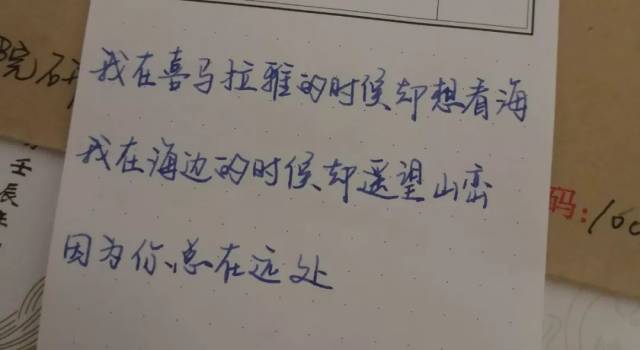 我在喜马拉雅的时候却想看海
我在海边的时候却遥望山峦
因为你总在远处
院
壬
長
码:100